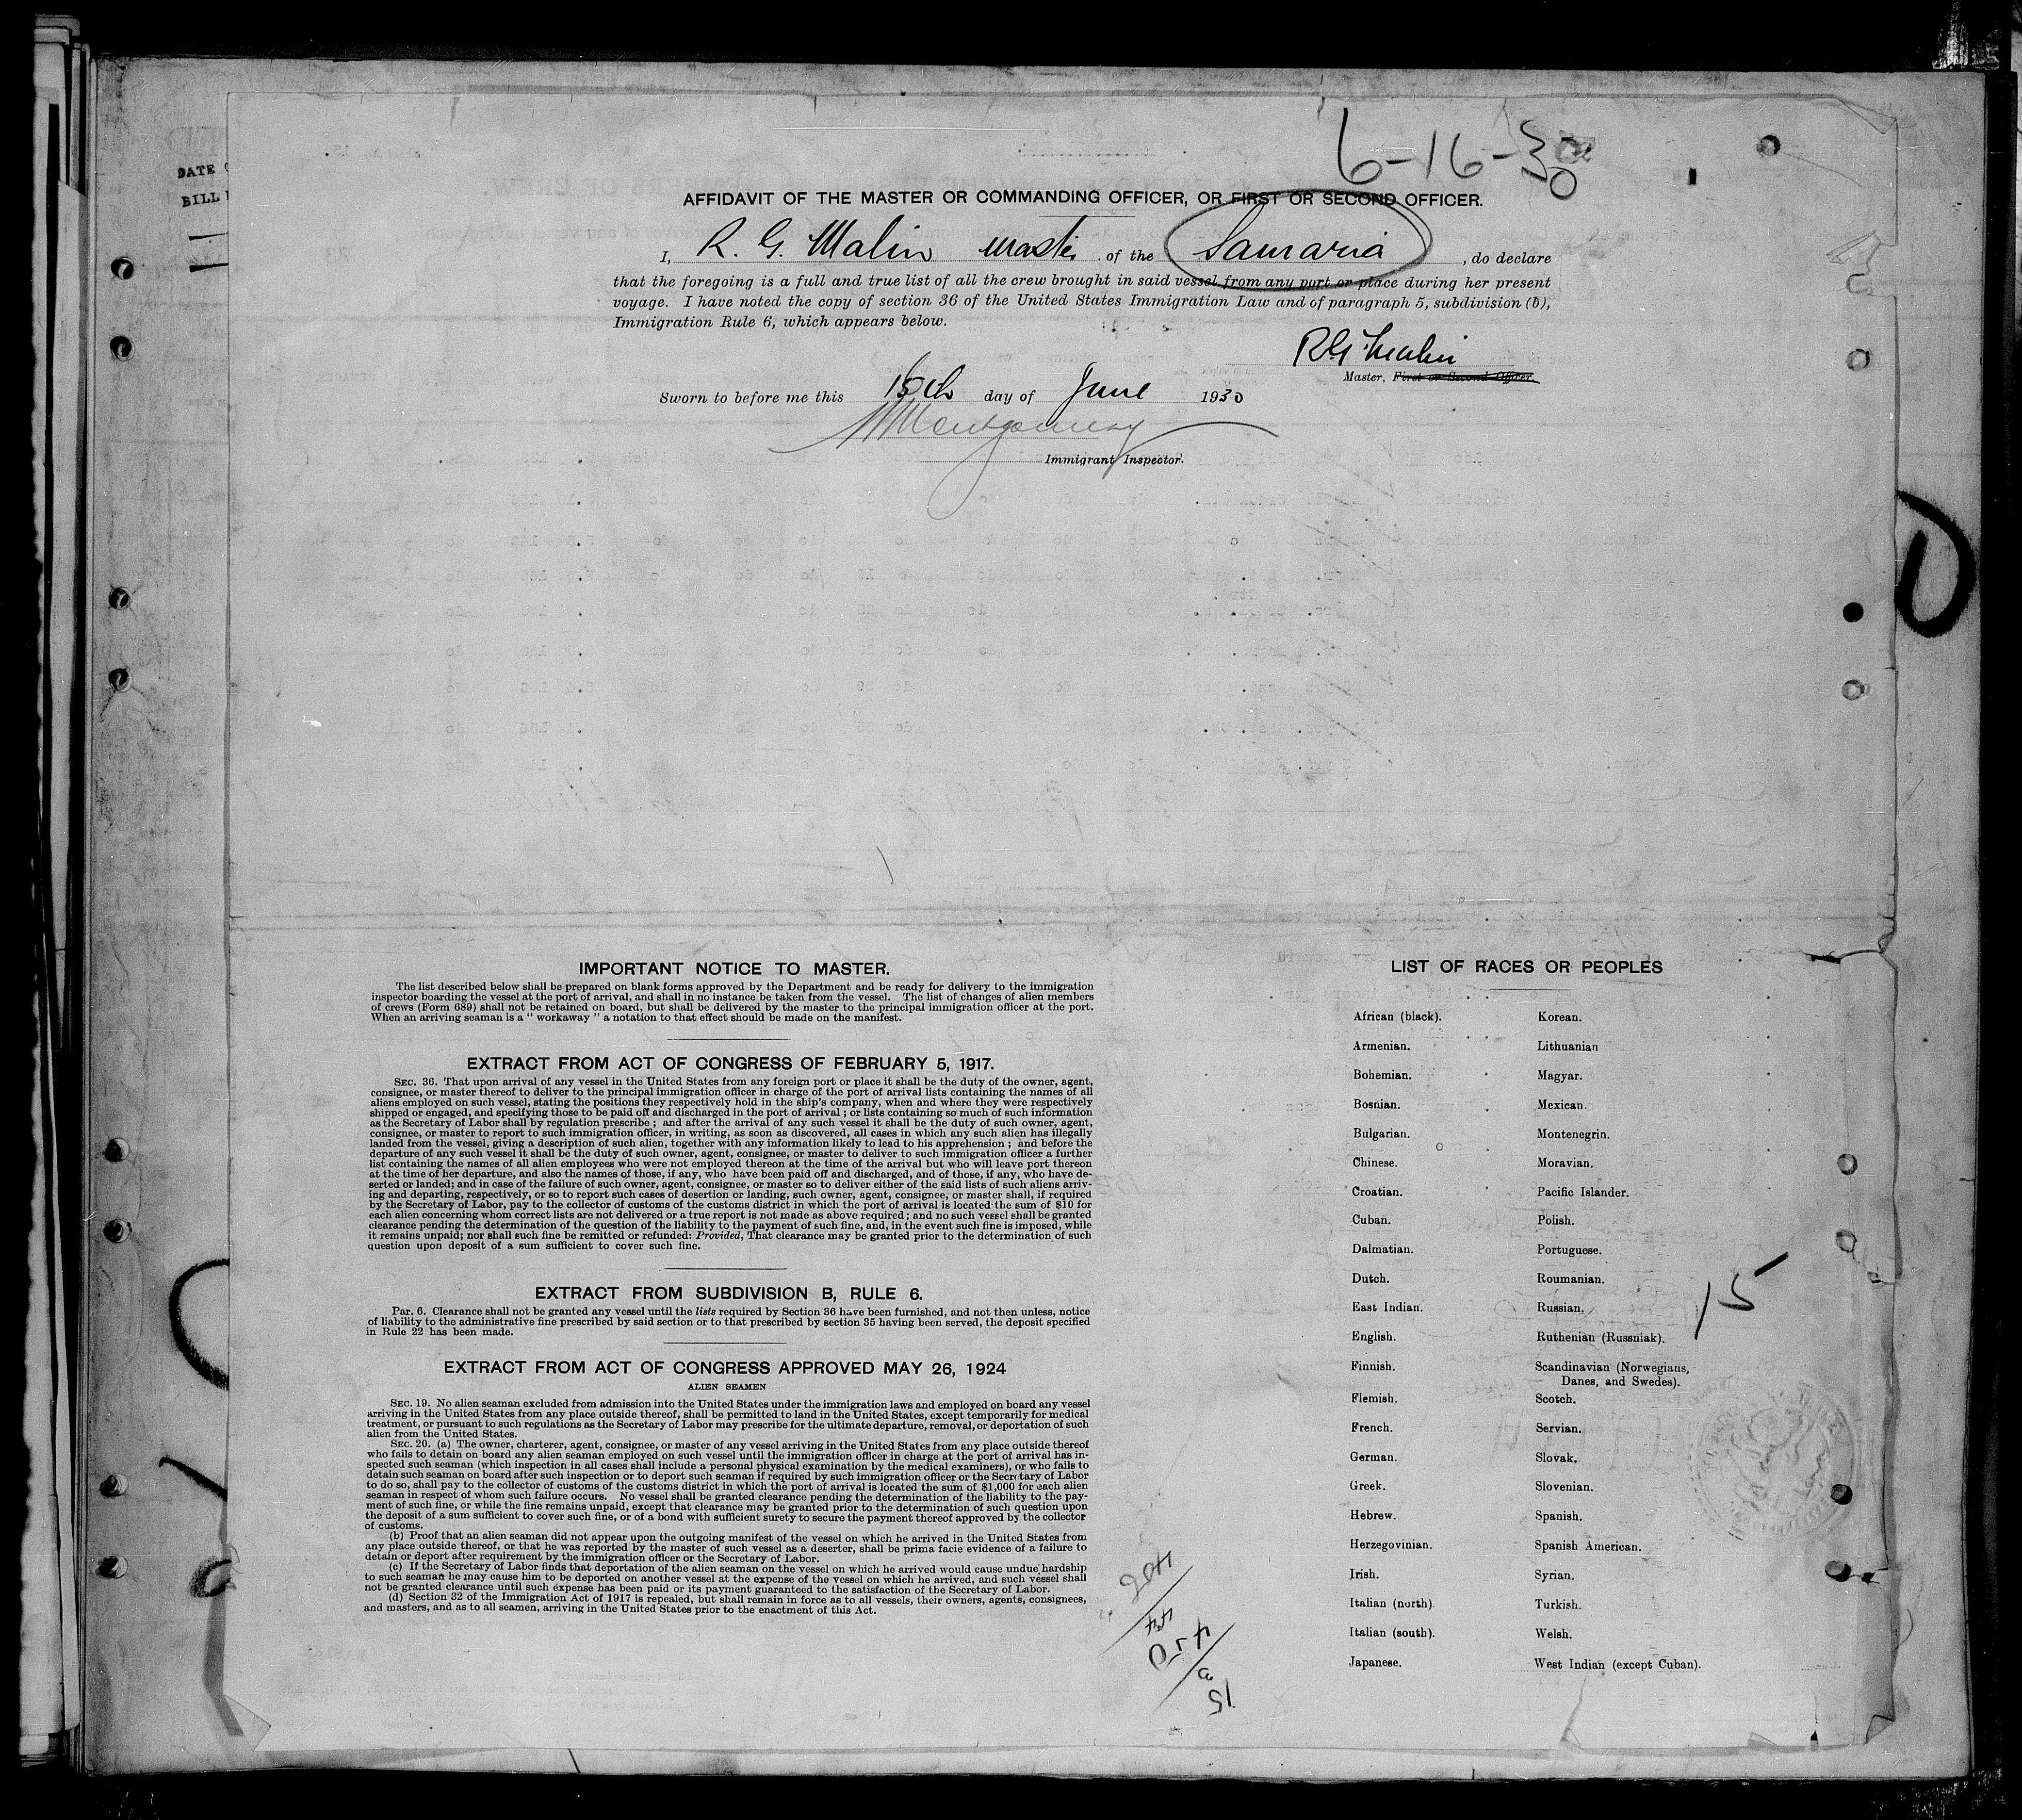 DATE
BILL
6-16-30
AFFIDAVIT OF THE MASTER OR COMMANDING OFFICER, OR FIRST OR SECOND OFFICER.
I, R. G. Malin Master of the Samaria, do declare
that the foregoing is a full and true list of all the crew brought in said vessel from any port or place during her present
voyage. I have noted the copy of section 36 of the United States Immigration Law and of paragraph 5, subdivision (b),
Immigration Rule 6, which appears below.
R G Malin
Master, First or Second Officer.
Sworn to before me this day of June 1930
Montgomery
Immigrant Inspector.
IMPORTANT NOTICE TO MASTER.
The list described below shall be prepared on blank forms approved by the Department and be ready for delivery to the immigration
inspector boarding the vessel at the port of arrival, and shall in no instance be taken from the vessel. The list of changes of alien members
of crews (Form 689) shall not be retained on board, but shall be delivered by the master to the principal immigration officer at the port.
When an arriving seaman is a " workaway " a notation to that effect should be made on the manifest.
EXTRACT FROM ACT OF CONGRESS OF FEBRUARY 5, 1917.
SEC. 36. That upon arrival of any vessel in the United States from any foreign port or place it shall be the duty of the owner, agent,
consignee, or master thereof to deliver to the principal immigration officer in charge of the port of arrival lists containing the names of all
aliens employed on such vessel, stating the positions they respectively hold in the ship's company, when and where they were respectively
shipped or engaged, and specifying those to be paid off and discharged in the port of arrival ; or lists containing so much of such information
as the Secretary of Labor shall by regulation prescribe ; and after the arrival of any such vessel it shall be the duty of such owner, agent,
consignee, or master to report to such immigration officer, in writing, as soon as discovered, all cases in which any such alien has illegally
landed from the vessel, giving a description of such alien, together with any information likely to lead to his apprehension ; and before the
departure of any such vessel it shall be the duty of such owner, agent, consignee, or master to deliver to such immigration officer a further
list containing the names of all alien employees who were not employed thereon at the time of the arrival but who will leave port thereon
at the time of her departure, and also the names of those, if any, who have been paid off and discharged, and of those, if any, who have de-
serted or landed; and in case of the failure of such owner, agent, consignee, or master so to deliver either of the said lists of such aliens arriv-
ing and departing, respectively, or so to report such cases of desertion or landing, such owner, agent, consignee, or master shall, if required
by the Secretary of Labor, pay to the collector of customs of the customs district in which the port of arrival is located the sum of $10 for
each alien concerning whom correct lists are not delivered or a true report is not made as above required ; and no such vessel shall be granted
clearance pending the determination of the question of the liability to the payment of such fine, and, in the event such fine is imposed, while
it remains unpaid; nor shall such fine be remitted or refunded: Provided, That clearance may be granted prior to the determination of such
question upon deposit of a sum sufficient to cover such fine.
EXTRACT FROM SUBDIVISION B, RULE 6.
Par. 6. Clearance shall not be granted any vessel until the lists required by Section 36 have been furnished, and not then unless, notice
of liability to the administrative fine prescribed by said section or to that prescribed by section 35 having been served, the deposit specified
in Rule 22 has been made.
EXTRACT FROM ACT OF CONGRESS APPROVED MAY 26, 1924
ALIEN SEAMEN
SEC. 19. No alien seaman excluded from admission into the United States under the immigration laws and employed on board any vessel
arriving in the United States from any place outside thereof, shall be permitted to land in the United States, except temporarily for medical
treatment, or pursuant to such regulations as the Secretary of Labor may prescribe for the ultimate departure, removal, or deportation of such
alien from the United States.
SEC. 20. (a) The owner, charterer, agent, consignee, or master of any vessel arriving in the United States from any place outside thereof
who fails to detain on board any alien seaman employed on such vessel until the immigration officer in charge at the port of arrival has in-
spected such seaman (which inspection in all cases shall include a personal physical examination by the medical examiners), or who fails to
detain such seaman on board after such inspection or to deport such seaman if required by such immigration officer or the Secretary of Labor
to do so, shall pay to the collector of customs of the customs district in which the port of arrival is located the sum of $1,000 for each alien
seaman in respect of whom such failure occurs. No vessel shall be granted clearance pending the determination of the liability to the pay-
ment of such fine, or while the fine remains unpaid, except that clearance may be granted prior to the determination of such question upon
the deposit of a sum sufficient to cover such fine, or of a bond with sufficient surety to secure the payment thereof approved by the collector
of customs.
(b) Proof that an alien seaman did not appear upon the outgoing manifest of the vessel on which he arrived in the United States from
any place outside thereof, or that he was reported by the master of such vessel as a deserter, shall be prima facie evidence of a failure to
detain or deport after requirement by the immigration officer or the Secretary of Labor.
(c) If the Secretary of Labor finds that deportation of the alien seaman on the vessel on which he arrived would cause undue hardship
to such seaman he may cause him to be deported on another vessel at the expense of the vessel on which he arrived, and such vessel shall
not be granted clearance until such expense has been paid or its payment guaranteed to the satisfaction of the Secretary of Labor.
(d) Section 32 of the Immigration Act of 1917 is repealed, but shall remain in force as to all vessels, their owners, agents, consignees,
and masters, and as to all seamen, arriving in the United States prior to the enactment of this Act.
LIST OF RACES OR PEOPLES
African (black). Korean.
Armenian. Lithuanian
Bohemian. Magyar.
Bosnian. Mexican.
Bulgarian. Montenegrin.
Chinese. Moravian.
Croatian. Pacific Islander.
Cuban. Polish.
Dalmatian. Portuguese.
Dutch. Roumanian.
East Indian. Russian.
English. Ruthenian (Russniak).
Finnish. Scandinavian (Norwegians,
Danes, and Swedes).
Flemish. Scotch.
French. Servian.
German. Slovak.
Greek. Slovenian.
Hebrew. Spanish.
Herzegovinian. Spanish American.
Irish. Syrian.
Italian (north). Turkish.
Italian (south). Welsh.
Japanese. West Indian (except Cuban).
15
450
15